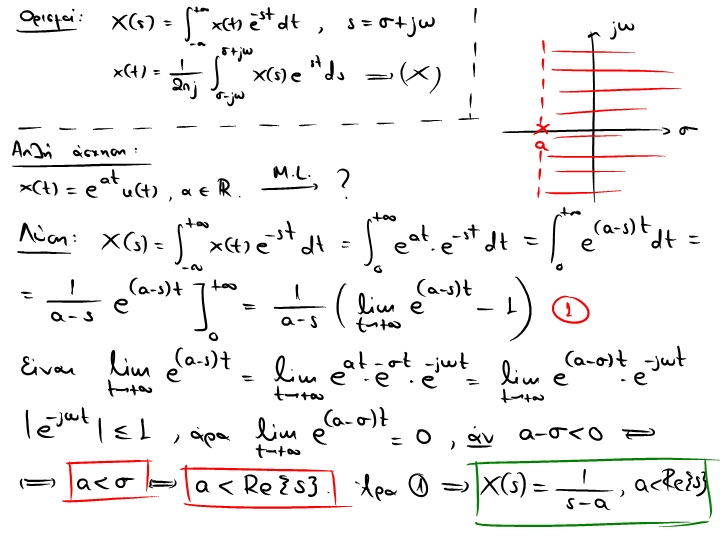 Ορισμοί: X(s) = ∫_{-∞}^{+∞} x(t) e^{-st} dt , s = σ + jω
x(t) = \frac{1}{2πj} ∫_{σ-jω}^{σ+jω} X(s) e^{st} ds ⟹ (X)
jω
σ
a
Απλή άσκηση:
x(t) = e^{at} u(t), a ∈ ℝ. M.L. ⟶ ?
Λύση: X(s) = ∫_{-∞}^{+∞} x(t) e^{-st} dt = ∫_{0}^{+∞} e^{at} · e^{-st} dt = ∫_{0}^{+∞} e^{(a-s)t} dt =
= \frac{1}{a-s} e^{(a-s)t} ]_{0}^{+∞} = \frac{1}{a-s} ( lim_{t→+∞} e^{(a-s)t} - 1 ) ①
Είναι lim_{t→+∞} e^{(a-s)t} = lim_{t→+∞} e^{at} · e^{-σt} · e^{-jωt} = lim_{t→+∞} e^{(a-σ)t} · e^{-jωt}
|e^{-jωt}| ≤ 1 , άρα lim_{t→+∞} e^{(a-σ)t} = 0 , άν a-σ<0 ⟺
⟺ a<σ ⟺ a < Re{s}. Άρα ① ⟹ X(s) = \frac{1}{s-a} , a<Re{s}